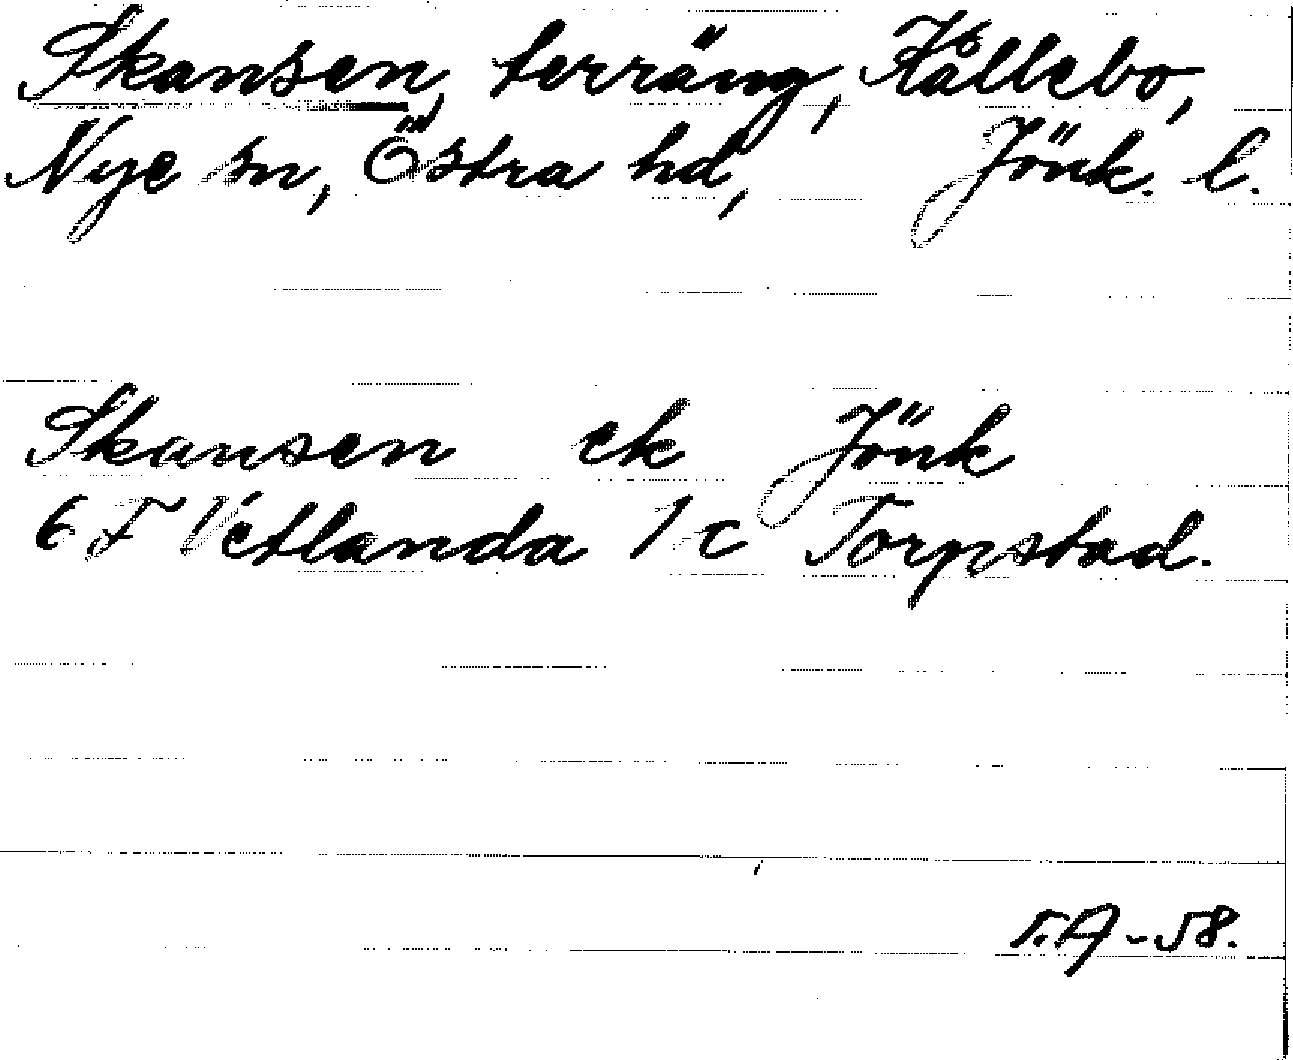 Skansen, terräng, Kållebo,
Nye sn, Östra hd, Jönk. l.
Skansen ek Jönk
6 F Vetlanda 1 c Torpstad.
T.A -58.